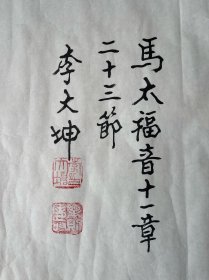 馬太福音十一章
二十三節
李大坤